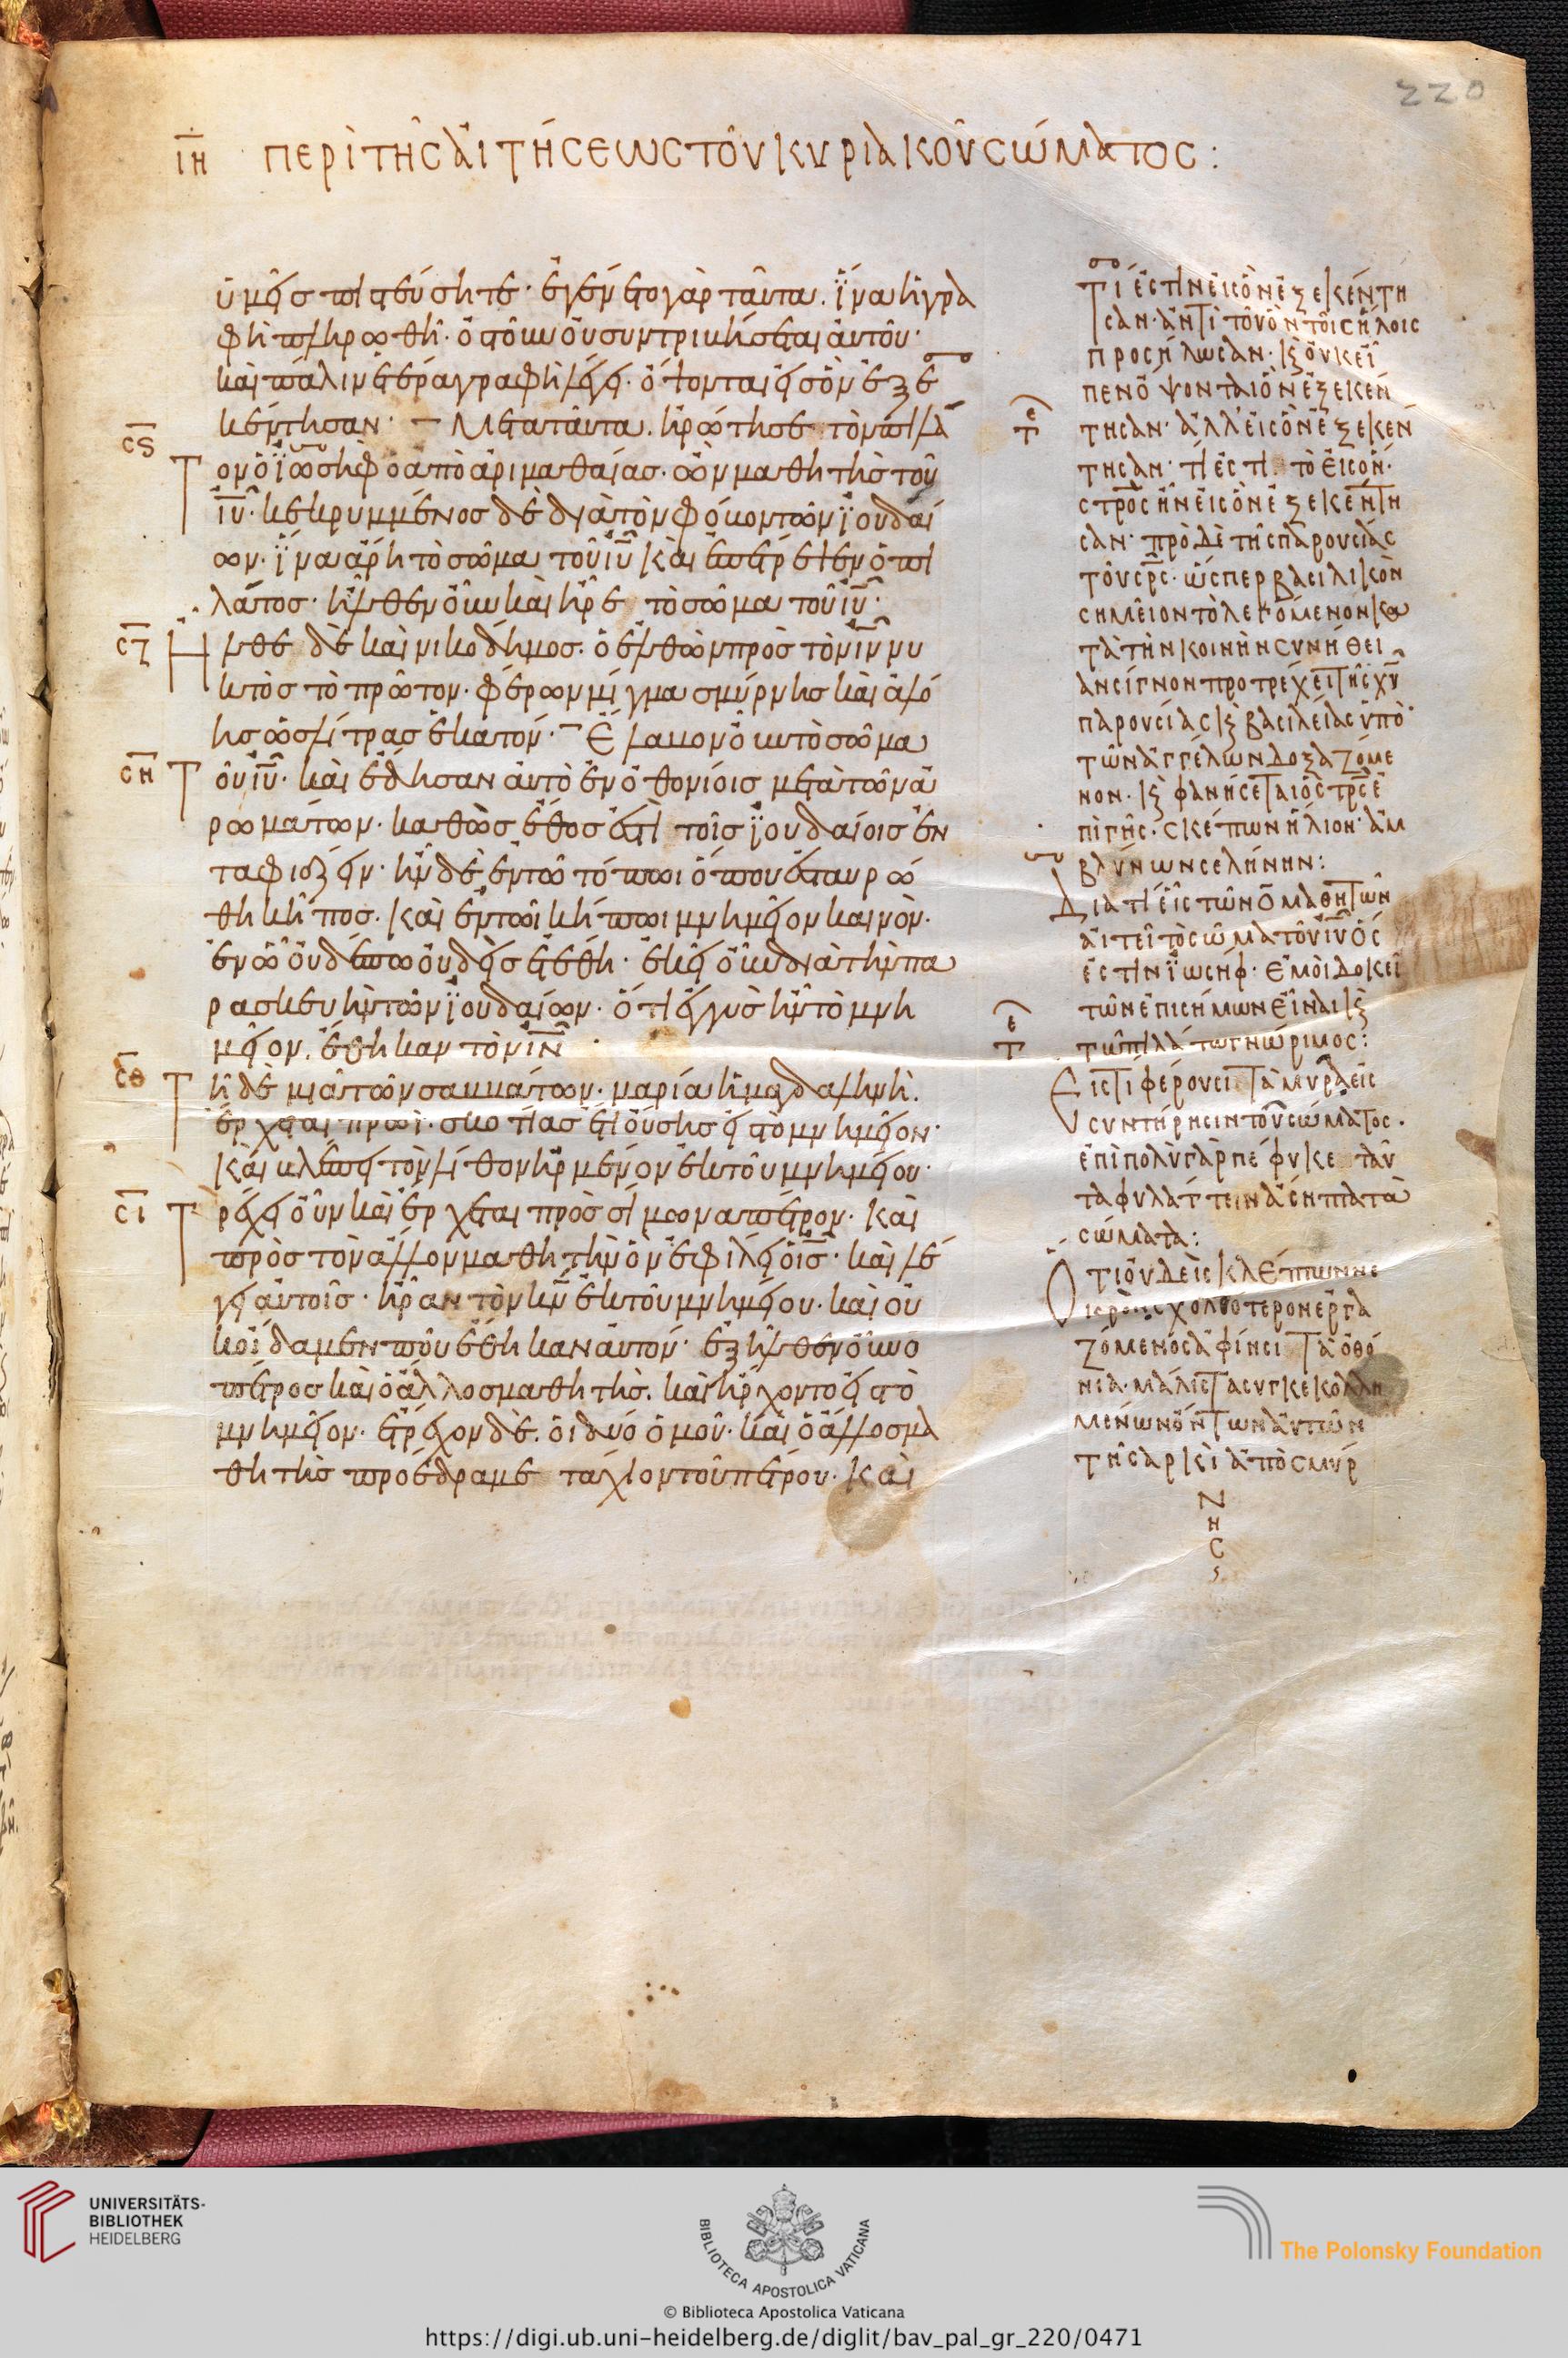 220
ιη περὶ τῆς αἰτήσεως τοῦ κυριακοῦ σώματος:
ὑμεῖς πιστεύσητε· ἐγένετο γὰρ ταῦτα. ἵνα ἡ γρα
φὴ πληρωθῆ· ὀστοῦν οὐ συντριβήσεται αὐτοῦ·
καὶ πάλιν ἑτέρα γραφὴ λέγει. ὄψονται εἰς ὃν ἐξε
κέντησαν· Μετα ταῦτα. ἠρώτησε τὸν πιλᾶ
σϛ
Τον ὁ ἰωσὴφ ὁ ἀπὸ ἀριμαθαίας. ὢν μαθητὴς τοῦ
ἰῦ· κεκρυμμένος δὲ διὰ τὸν φόβον τῶν ἰουδαί
ων· ἵνα ἄρη τὸ σῶμα τοῦ ἰῦ καὶ ἐπέτρεψεν ὁ πι
λάτος· ἦλθεν οὖν καὶ ἦρε τὸ σῶμα τοῦ ἰῦ·
σζ
Ηλθε δὲ καὶ νικοδημος. ὁ ἐλθὼν πρὸς τὸν ἰν νυ
κτὸς τὸ πρῶτον. φέρων μίγμα σμύρνης καὶ ἀλό
ης ὡς λίτρας ἑκατόν· Ἔλαβον οὖν τὸ σῶμα
ση
Τοῦ ἰῦ· καὶ ἔδησαν αὐτὸ ἐν ὀθονίοις μετὰ τῶν ἀ
ρωμάτων. καθὼς ἔθος ἐστὶ τοῖς ἰουδαίοις ἐν
ταφιάζειν· ἦν δὲ ἐν τῶ τόπωι ὅπου ἐσταυρώ
θη κῆπος. καὶ ἐν τῶι κήπωι μνημεῖον καινὸν.
ἐν ὧ οὐδέπω οὐδεὶς ἐτέθη· ἐκεῖ οὖν διὰ τὴν πα
ρασκευὴν τῶν ἰουδαίων· ὅτι ἐγγὺς ἦν τὸ μνη
μεῖον. ἔθηκαν τὸν ἰν
σθ
Τῆ δὲ μιᾶ τῶν σαββάτων. μαρία ἡ μαγδαληνὴ.
ἔρχεται πρωῒ. σκοτίας ἔτι οὔσης εἰς τὸ μνημεῖον·
καὶ βλέπει τὸν λίθον ἠρμένον ἐκ τοῦ μνημείου·
σι
Τρέχει οὖν καὶ ἔρχεται πρὸς σίμωνα πέτρον. καὶ
πρὸς τὸν ἄλλον μαθητὴν ὃν ἐφίλει ὁ ἰς· καὶ λέ
γει αὐτοῖς· ἦραν τὸν κν ἐκ τοῦ μνημείου. καὶ οὐ
κ οἴδαμεν ποῦ ἔθηκαν αὐτόν· ἐξῆλθεν οὖν ὁ
πέτρος καὶ ὁ ἄλλος μαθητὴς. καὶ ἤρχοντο εἰς τὸ
μνημεῖον. ἔτρεχον δὲ. οἱ δυό ὁμοῦ· καὶ ὁ ἄλλος μα
θητὴς προέδραμε ταχιον τοῦ πέτρου. καὶ
Τί ἐστιν εἰς ὃν ἐξεκέντη
σαν· ἀντὶ τοῦ ὃν τοῖς ἥλοις
προσήλωσαν. κ οὐκ εἶ
πεν ὄψονται ὃν ἐξεκέν
τησαν· ἀλλ' εἰς ὃν ἐξεκέν
τησαν· τί ἐστι τὸ εἰς ὃν·
στρὸς ἦν εἰς ὃν ἐξεκέντη
σαν· πρὸ δὲ τῆς παρουσίας
τοῦ σρς. ὥσπερ βασιλικὸν
σημεῖον τὸ λεγόμενον κα
τὰ τὴν κοινὴν συνήθει
αν σίγνον προτρέχει τῆς χυ
παρουσίας κ βασιλείας ὑπὸ
τῶν ἀγγέλων δοξαζόμε
νον. κ φανήσεται ὁ στρς ἐ
πὶ γῆς. σκέπων ἥλιον. ἀμ
βλύνων σελήνην:
Διατί εἷς τῶν ο μαθητῶν
αἰτεῖ τὸ σῶμα τοῦ ἰῦ ὅς
ἐστιν ἰωσήφ. ἐμοὶ δοκεῖ
τῶν ἐπισήμων εἶναι κ
τῶ πιλάτω γνώριμος:
Εἰς τί φέρουσι τὰ μύρα εἰς
συντήρησιν τοῦ σώματος.
ἐπιπολὺ γὰρ πέφυκε ταῦ
τα φυλάττειν ἄσηπτα τὰ
σώματα:
Ὅτι οὐδεὶς κλέπτων
σχολαιότερον ἐργα
ζόμενος ἀφίησι τὰ ὀθό
νια. μάλιστα συγκεκολλη
μένων ὄντων αὐτῶν
τῆ σαρκὶ ἀπὸ σμύρ
ν
η
ς
UNIVERSITÄTS-
BIBLIOTHEK
HEIDELBERG
BIBLIOTECA APOSTOLICA VATICANA
The Polonsky Foundation
© Biblioteca Apostolica Vaticana
https://digi.ub.uni-heidelberg.de/diglit/bav_pal_gr_220/0471